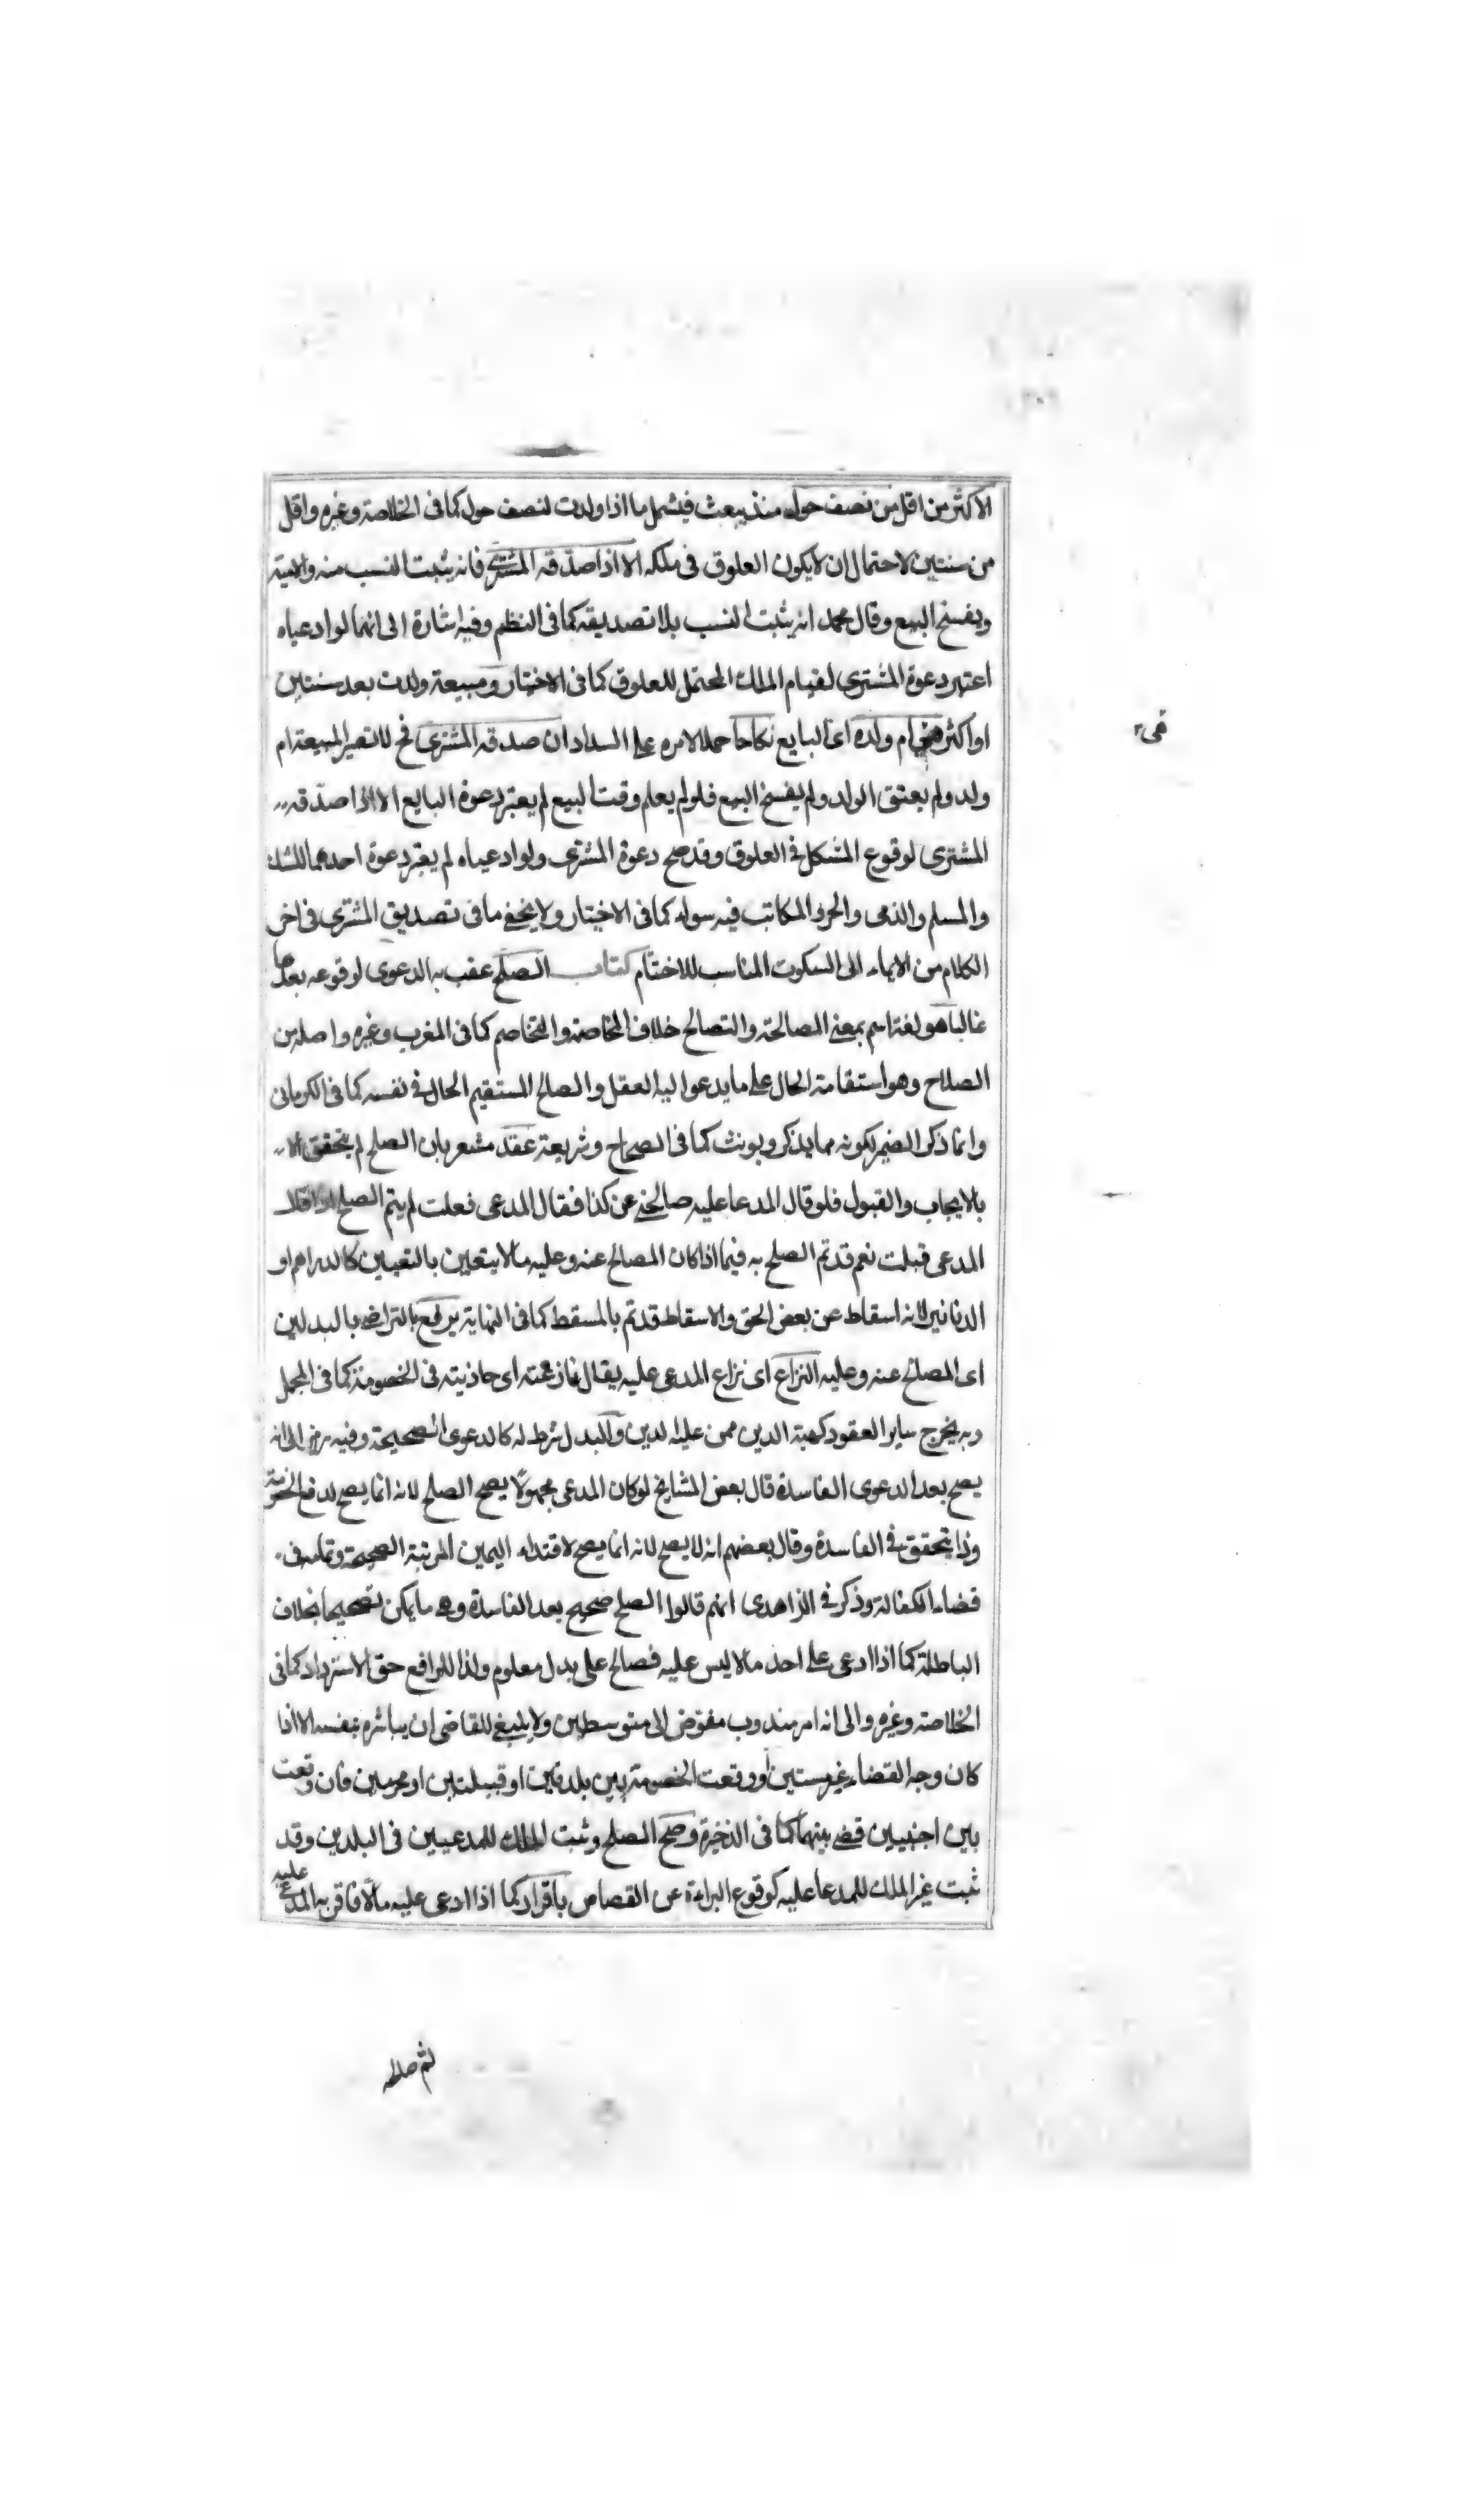 الاكثر من اقل من نصف حول منذ بيعت فيشمل ما اذا ولدت لنصف حول كما فى الخلاصة وغيره واقل
من سنتين لاحتمال ان لا يكون العلوق فى ملكه الا اذا صدقه المشترى فانه يثبت النسب منه والامية
ويفسخ البيع وقال محمد انه يثبت النسب بلا تصديقه كما فى النظم وفيه اشارة الى انهما لو ادعياه
اعتبر دعوة المشترى لقيام الملك المحتمل للعلوق كما فى الاختيار ومبيعة ولدت بعد سنتين
او اكثر فهى ام ولده اى البايع نكاحا حملا لامره على السداد ان صدقه المشترى فح لا تصير المبيعة ام
ولد ولم يعتق الولد ولم يفسخ البيع فلو لم يعلم وقت البيع لم يعتبر دعوة البايع الا اذا صدقه
المشترى لوقوع الشك فى العلوق وقد صح دعوة المشترى ولو ادعياه لم يعتبر دعوة احدهما للشك
والمسلم والذمى والحر والمكاتب فيه سواء كما فى الاختيار ولا يخفى ما فى تصديق المشترى فى اخر
الكلام من الايماء الى السكوت المناسب للاختتام كتاب الصلح عقب به الدعوى لوقوعه بعدها
غالبا هو لغة اسم بمعنى المصالحة والتصالح خلاف المخاصمة والتخاصم كما فى المغرب وغيره واصله من
الصلاح وهو استقامة الحال على ما يدعوا اليه العقل والصالح المستقيم الحال فى نفسه كما فى الكرمانى
وانما ذكر الضمير لكونه مما يذكر ويونث كما فى الصحاح وشريعة عقد مشعر بان الصلح لم يتحقق الا
بالايجاب والقبول فلو قال المدعا عليه صالحنى عن كذا فقال المدعى فعلت لم يتم الصلح قال
المدعى قبلت نعم قد تم الصلح به فيما اذا كان المصالح عنه وعليه مما لا يتعين بالتعيين كالدراهم او
الدنانير لانه اسقاط عن بعض الحق والاسقاط قد تم بالمسقط كما فى النهاية يرفع بالتراضى بالبدلين
اى المصالح عنه وعليه النزاع اى نزاع المدعى عليه يقال نازعته اى جاذبته فى الخصومة كما فى المجمل
وبه يخرج ساير العقود كهبة الدين ممن عليه الدين والبدل شرط له كالدعوى الصحيحة وفيه رمز الى انه
يصح بعد الدعوى الفاسدة قال بعض المشايخ لو كان المدعى مجهولا يصح الصلح لانه انما يصح لدفع الخصومة
وذا يتحقق فى الفاسدة وقال بعضهم انه لا يصح لانه انما يصح لافتداء اليمين المرتبة الصحيحة وتمامه فى
قضاء الكفالة وذكر فى الزاهدى انهم قالوا الصلح صحيح بعد الفاسدة وهى ما يمكن تصحيحها بخلاف
الباطلة كما اذا ادعى على احد مالا ليس عليه فصالح على بدل معلوم ولذا للرافع حق الاسترداد كما فى
الخلاصة وغيره والى انه امر مندوب مفوض الى متوسطين ولا ينبغى للقاضى ان يباشره بنفسه الا اذا
كان وجه القضاء غير مستبين او وقعت الخصومة بين بلدتين او قبيلتين او محرمين فان وقعت
بين اجنبيين قضى بينهما كما فى الذخيرة وصح الصلح وثبت الملك للمدعيين فى البدلين وقد
ثبت غير الملك للمدعا عليه كوقوع البراءة عن القصاص باقرار كما اذا ادعى عليه مالا فاقر به المدعى عليه
فهى
ثم صالحه